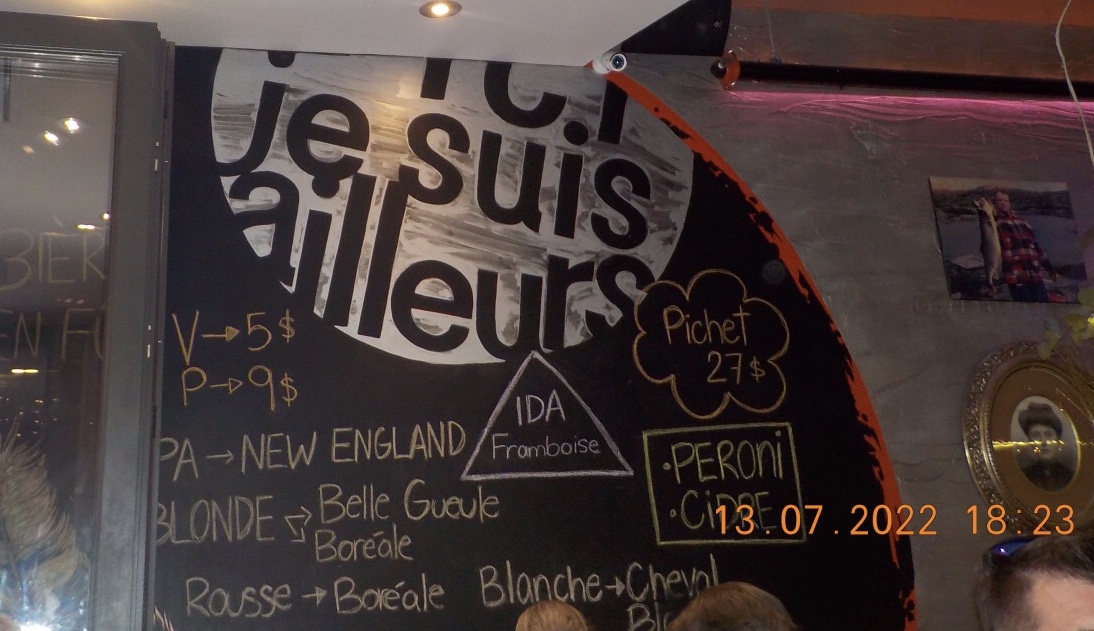 ICI
je suis
ailleurs
BIÈR
EN FÛ
V→5$
P→9$
Pichet
27$
IDA
Framboise
PA→NEW ENGLAND
PERONI
CIDRE
BLONDE → Belle Gueule
Boréale
Rousse→Boréale
Blanche→Cheval
Bl
13.07.2022 18:23